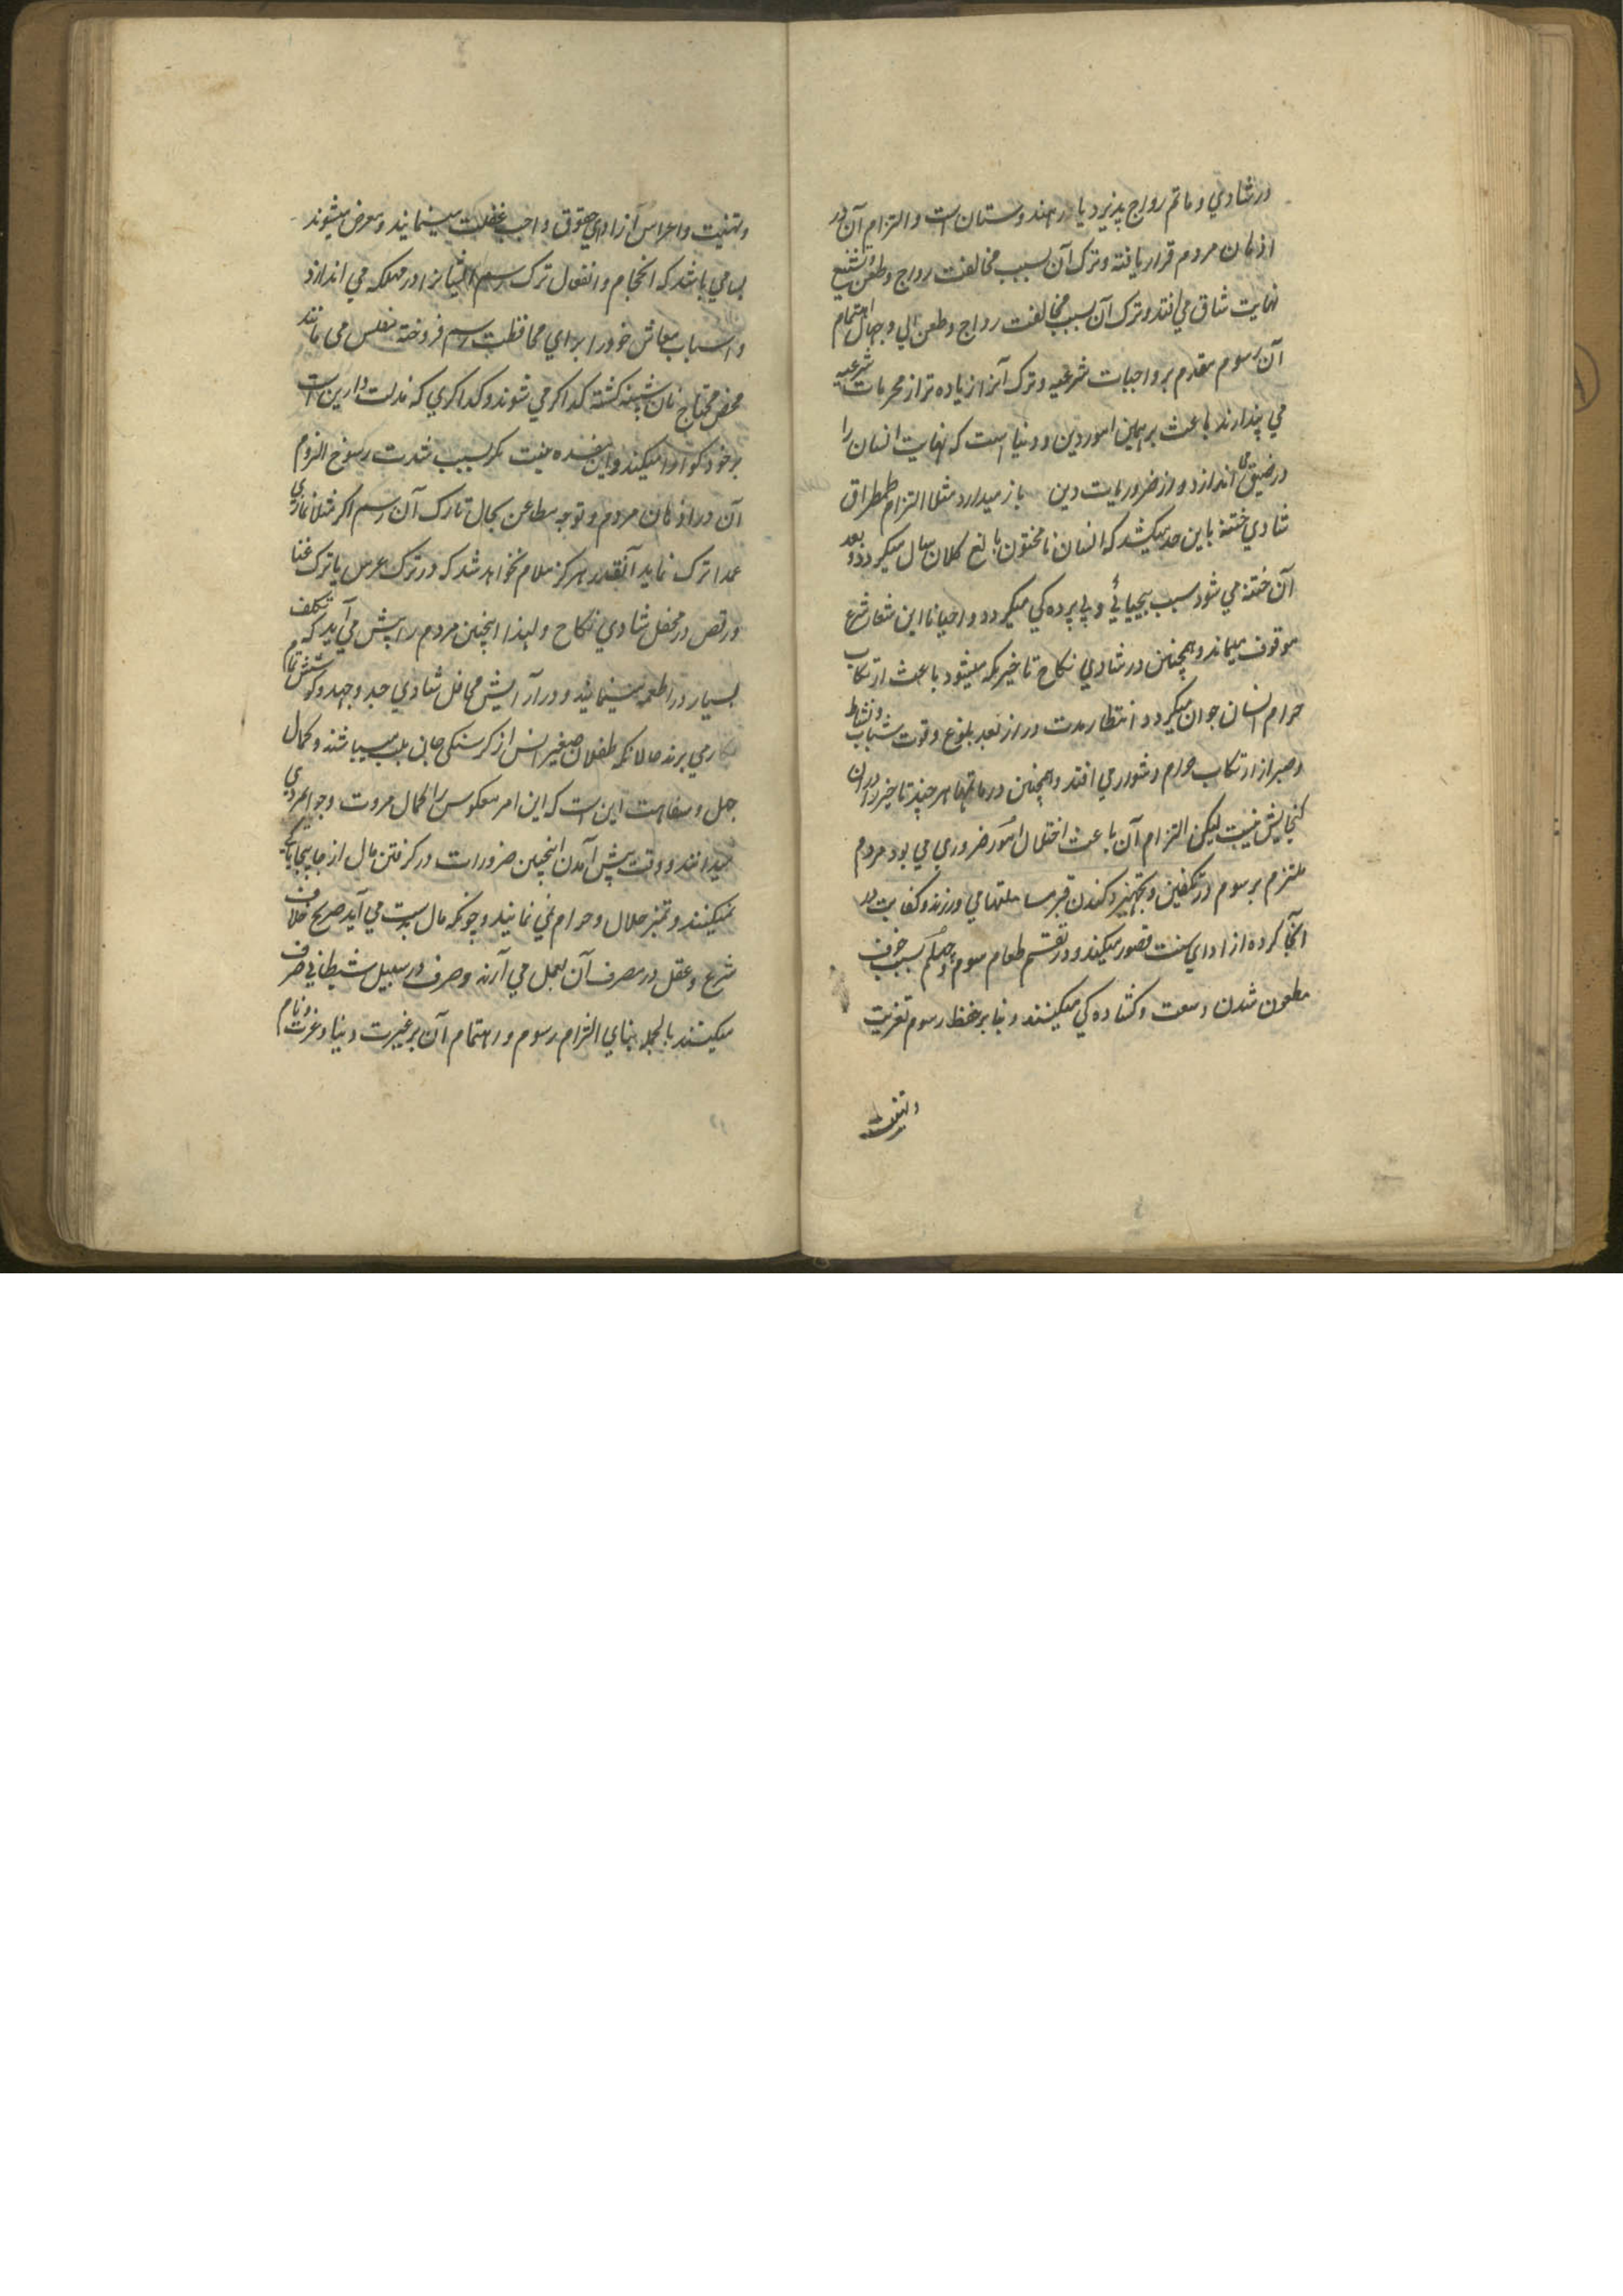 در شادي و ماتم رواج پذير ديار هندوستان است و التزام آن در
اذهان مردم قرار يافته و ترک آن بسبب مخالفت رواج و طعن و تشنيع
نهايت شاق مي افتد و ترک آن بسبب مخالفت رواج و طعن اهالي و جهال اهتمام
آن رسوم مقدم بر واجبات شرعيه و ترک آنرا زياده تر از محرمات شرعيه
مي پندارند باعث برهمي امور دين و دنيا است که نهايت انسان را
در ضيق مي اندازد و از ضروريات دين باز ميدارد مثلا التزام طمطراق
شادي ختنه باين حد ميکشد که انسان نامختون بالغ کلان سال ميگردد و بعد
آن ختنه مي شود سبب بيحيائي و بي پرده کي ميگردد و احيانا اين شعار شرع
موقوف ميماند و همچنين در شادي نکاح تاخير که ميشود باعث ارتکاب
حرام انسان جوان ميگردد انتظار مدت دراز بعد بلوغ وقوت شباب و نشاط
و صبر از ارتکاب حرام دشوار مي افتد و همچنين در ماتمها هر چند تاخير را دران
گنجايش نيست ليکن التزام آن باعث اختلال امور ضروري مي بود مردم
ملتزم برسوم در تکفين و تجهيز و کندن قبر مساهلتها مي ورزند و کفايت در
آنجا کرده از اداي سنت قصور ميکنند و در تقسيم طعام سوم و چهلم بسبب خوف
مطعون شدن وسعت و کشاده کي ميکنند و بنا بر حفظ رسوم تعزيت
و تهنيت
و تهنيت و اعراس آن از اداي حقوق واجب غفلت مينمايند و معرض ميشوند
بسا مي باشد که انجام و انفعال ترک رسم ايشانرا در مهلکه مي اندازد
و اسباب معاش خود را براي محافظت رسم فروخته مفلس مي مانند
محض محتاج نان شبينه گشته گداگر مي شوند و گداگري که مذلت دارين است
بر خود گوارا ميکنند و اين مفسده نيست مگر بسبب شدت رسوخ التزوم
آن در اذهان مردم و توجه مطاعن بحال تارک آن رسم اگر مثلا نمازي
عمدا ترک نمايد آنقدر هرگز ملام نخواهد شد که در ترک عرس يا ترک غنا
و رقص در محفل شادي نکاح و لهذا اينچنين مردم را پيش مي آيد که تکلف
بسيار در اطعمه مينمايند و در آرايش محافل شادي جد و جهد و کوشش تمام
بکار مي برند حالانکه طفلان صغير السن از گرسنگي جان بلب ميباشند و کمال
جهل و سفاهت اين است که اين امر معکوس را کمال مروت و جوانمردي
ميدانند و وقت پيش آمدن اينچنين ضرورات در گرفتن مال از جا بيجا باکي
نميکنند و تميز حلال و حرام نمي نمايند و چونکه مال بدست مي آيد صريح خلاف
شرع و عقل در مصرف آن بعمل مي آرند و صرف در سبيل شيطاني صرف
ميکنند بالجمله بناي التزام رسوم و اهتمام آن بر غيرت دنيا و عزت و نام